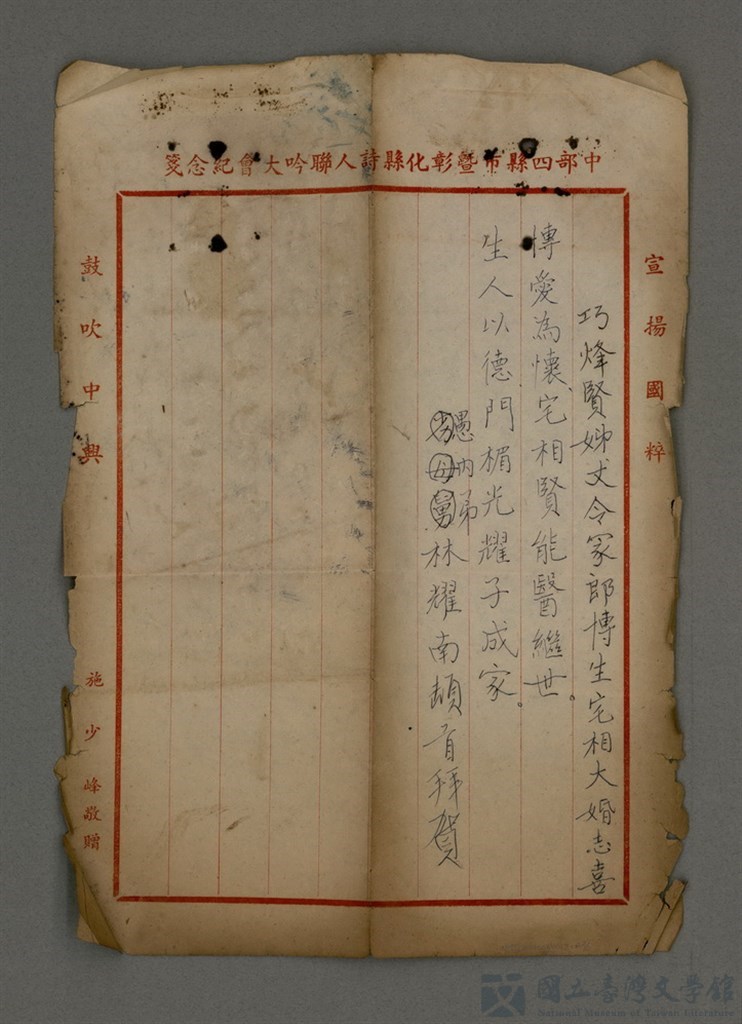 中部四縣市暨彰化縣詩人聯吟大會紀念箋
宣揚國粹
巧烽賢姊丈令冢郎博生宅相大婚志喜
博愛為懷、宅相賢能醫繼世。
生人以德、門楣光耀子成家。
愚內弟
母舅林耀南頓首拜賀
鼓吹中興
施少峰敬贈
國立臺灣文學館
National Museum of Taiwan Literature